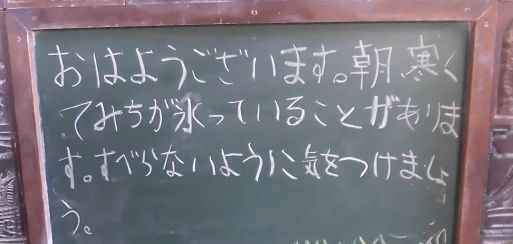 おはようございます。朝、寒く
てみちが氷っていることがありま
す。すべらないように気をつけましょ
う。